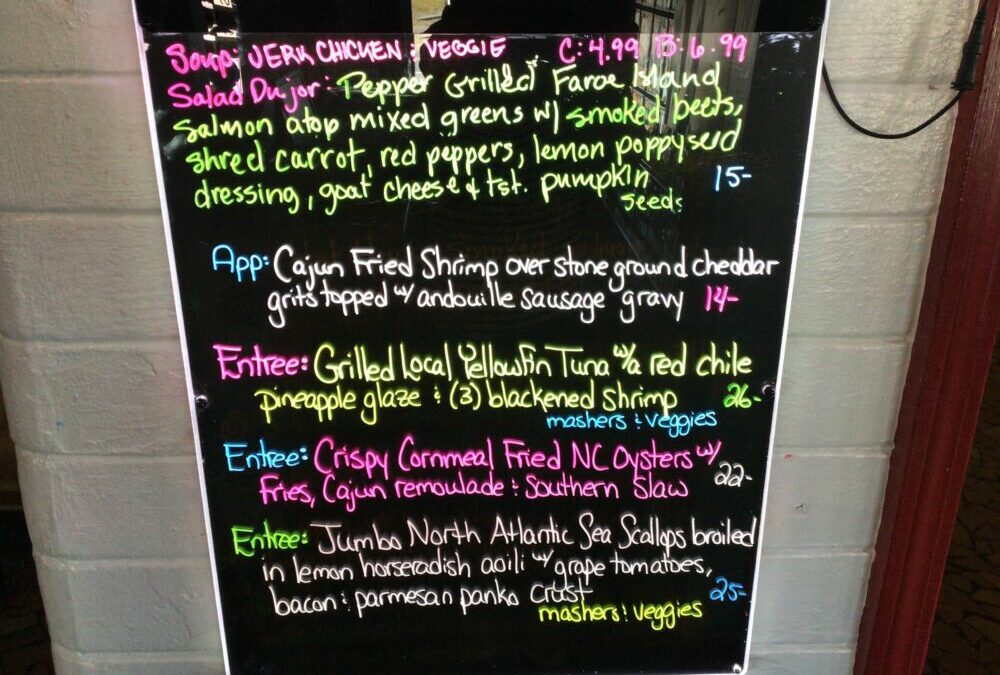 Soup: JERK CHICKEN & VEGGIE C: 4.99 B: 6.99
Salad Dujor: Pepper Grilled Faroe Island
Salmon atop mixed greens w/ smoked beets,
shred carrot, red peppers, lemon poppyseed
dressing, goat cheese & tst. pumpkin 15-
seeds
App: Cajun Fried Shrimp over stone ground cheddar
grits topped w/ andouille sausage gravy 14-
Entree: Grilled Local Yellowfin Tuna w/a red chile
pineapple glaze & (3) blackened shrimp 26-
mashers & veggies
Entree: Crispy Cornmeal Fried NC Oysters w/
Fries, Cajun remoulade & Southern Slaw 22-
Entree: Jumbo North Atlantic Sea Scallops broiled
in lemon horseradish aoili w/ grape tomatoes,
bacon & parmesan panko crust 25-
mashers & veggies